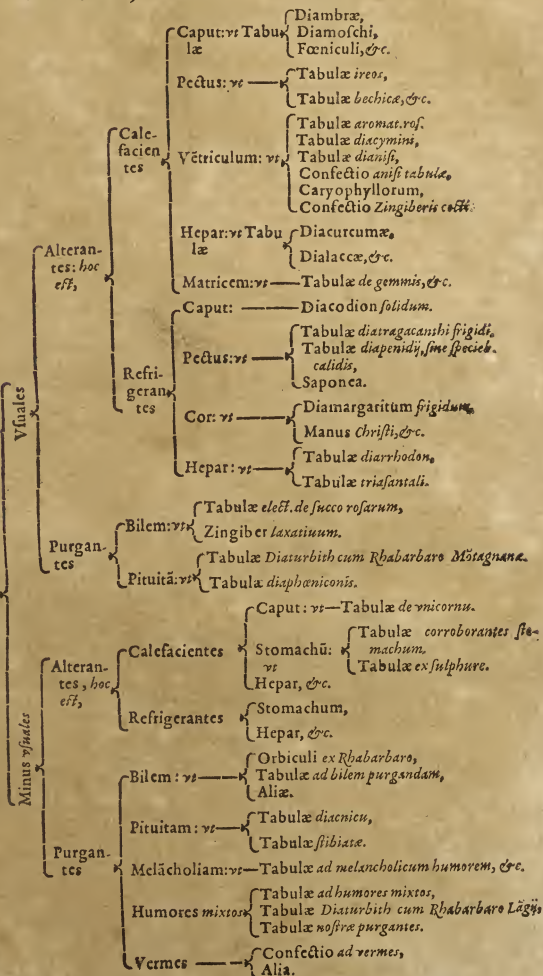 Vſuales
Alteran-
tes: hoc
eſt,
Cale-
facien
tes
Caput: vt Tabu
læ
Diambræ,
Diamoſchi,
Fœniculi, &c.
Pectus: vt
Tabulæ ireos,
Tabulæ bechicæ, &c.
Vētriculum: vt
Tabulæ aromat. roſ.
Tabulæ diacymini,
Tabulæ dianiſi,
Confectio aniſi tabulæ,
Caryophyllorum,
Confectio Zingiberis
Hepar: vt Tabu
læ
Diacurcumæ,
Dialaccæ, &c.
Matricem: vt
Tabulæ de gemmis, &c.
Refri-
geran-
tes
Caput:
Diacodion ſolidum.
Pectus: vt
Tabulæ diatragacanthi frigidi,
Tabulæ diapenidij, ſine ſpecieb.
calidis,
Saponea.
Cor: vt
Diamargaritum frigidum,
Manus Chriſti, &c.
Hepar: vt
Tabulæ diarrhodon,
Tabulæ triaſantali.
Purgan-
tes
Bilem: vt
Tabulæ elect. de ſucco roſarum,
Zingiber laxatiuum.
Pituitā: vt
Tabulæ Diaturbith cum Rhabarbaro Mōtagnanæ.
Tabulæ diaphœniconis.
Minus vſuales
Alteran-
tes, hoc
eſt,
Calefacientes
Caput: vt
Tabulæ de vnicornu.
Stomachū:
vt
Tabulæ corroborantes ſto-
machum.
Tabulæ ex ſulphure.
Hepar, &c.
Refrigerantes
Stomachum,
Hepar, &c.
Purgan-
tes
Bilem: vt
Orbiculi ex Rhabarbaro,
Tabulæ ad bilem purgandam,
Aliæ.
Pituitam: vt
Tabulæ diacnicu,
Tabulæ ſtibiatæ.
Melācholiam: vt
Tabulæ ad melancholicum humorem, &c.
Humores mixtos
Tabulæ ad humores mixtos,
Tabulæ Diaturbith cum Rhabarbaro Lāgij,
Tabulæ noſtræ purgantes.
Vermes
Confectio ad vermes,
Alia.